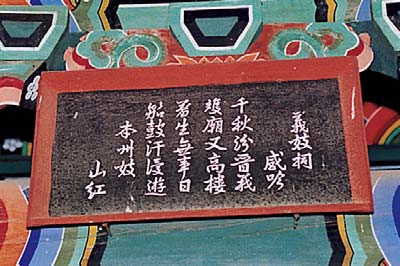 義妓祠
感吟
千秋汾晉義
雙廟又高樓
羞生無事日
笳鼓汗漫遊
本州妓
山紅